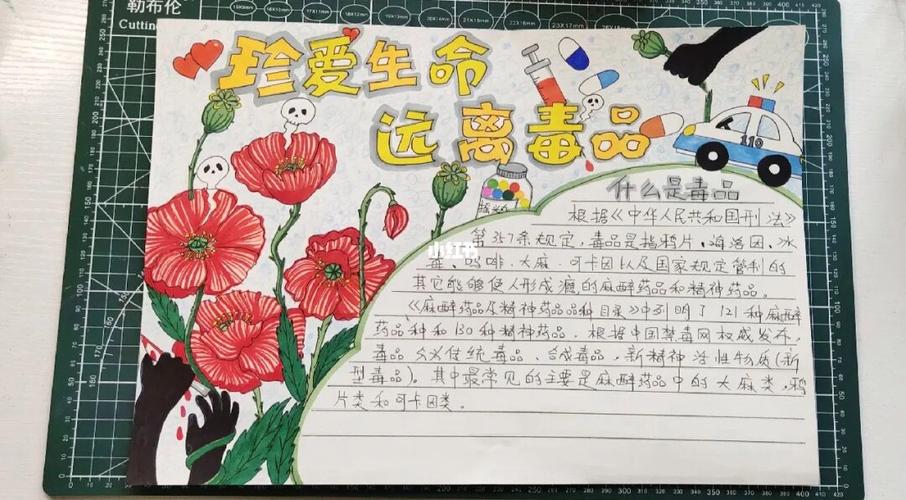 勒布伦
Cutting
珍爱生命
远离毒品
110
什么是毒品
根据《中华人民共和国刑法》
第357条规定，毒品是指鸦片、海洛因、冰
毒、吗啡、大麻、可卡因以及国家规定管制的
其它能够使人形成瘾的麻醉药品和精神药品。
《麻醉药品及精神药品品种目录》中列明了121种麻醉
药品种和130种精神药品。根据中国禁毒网权威发布，
毒品分为传统毒品、合成毒品，新精神活性物质（新
型毒品）。其中最常见的主要是麻醉药品中的大麻类，鸦
片类和可卡因类。
小红书